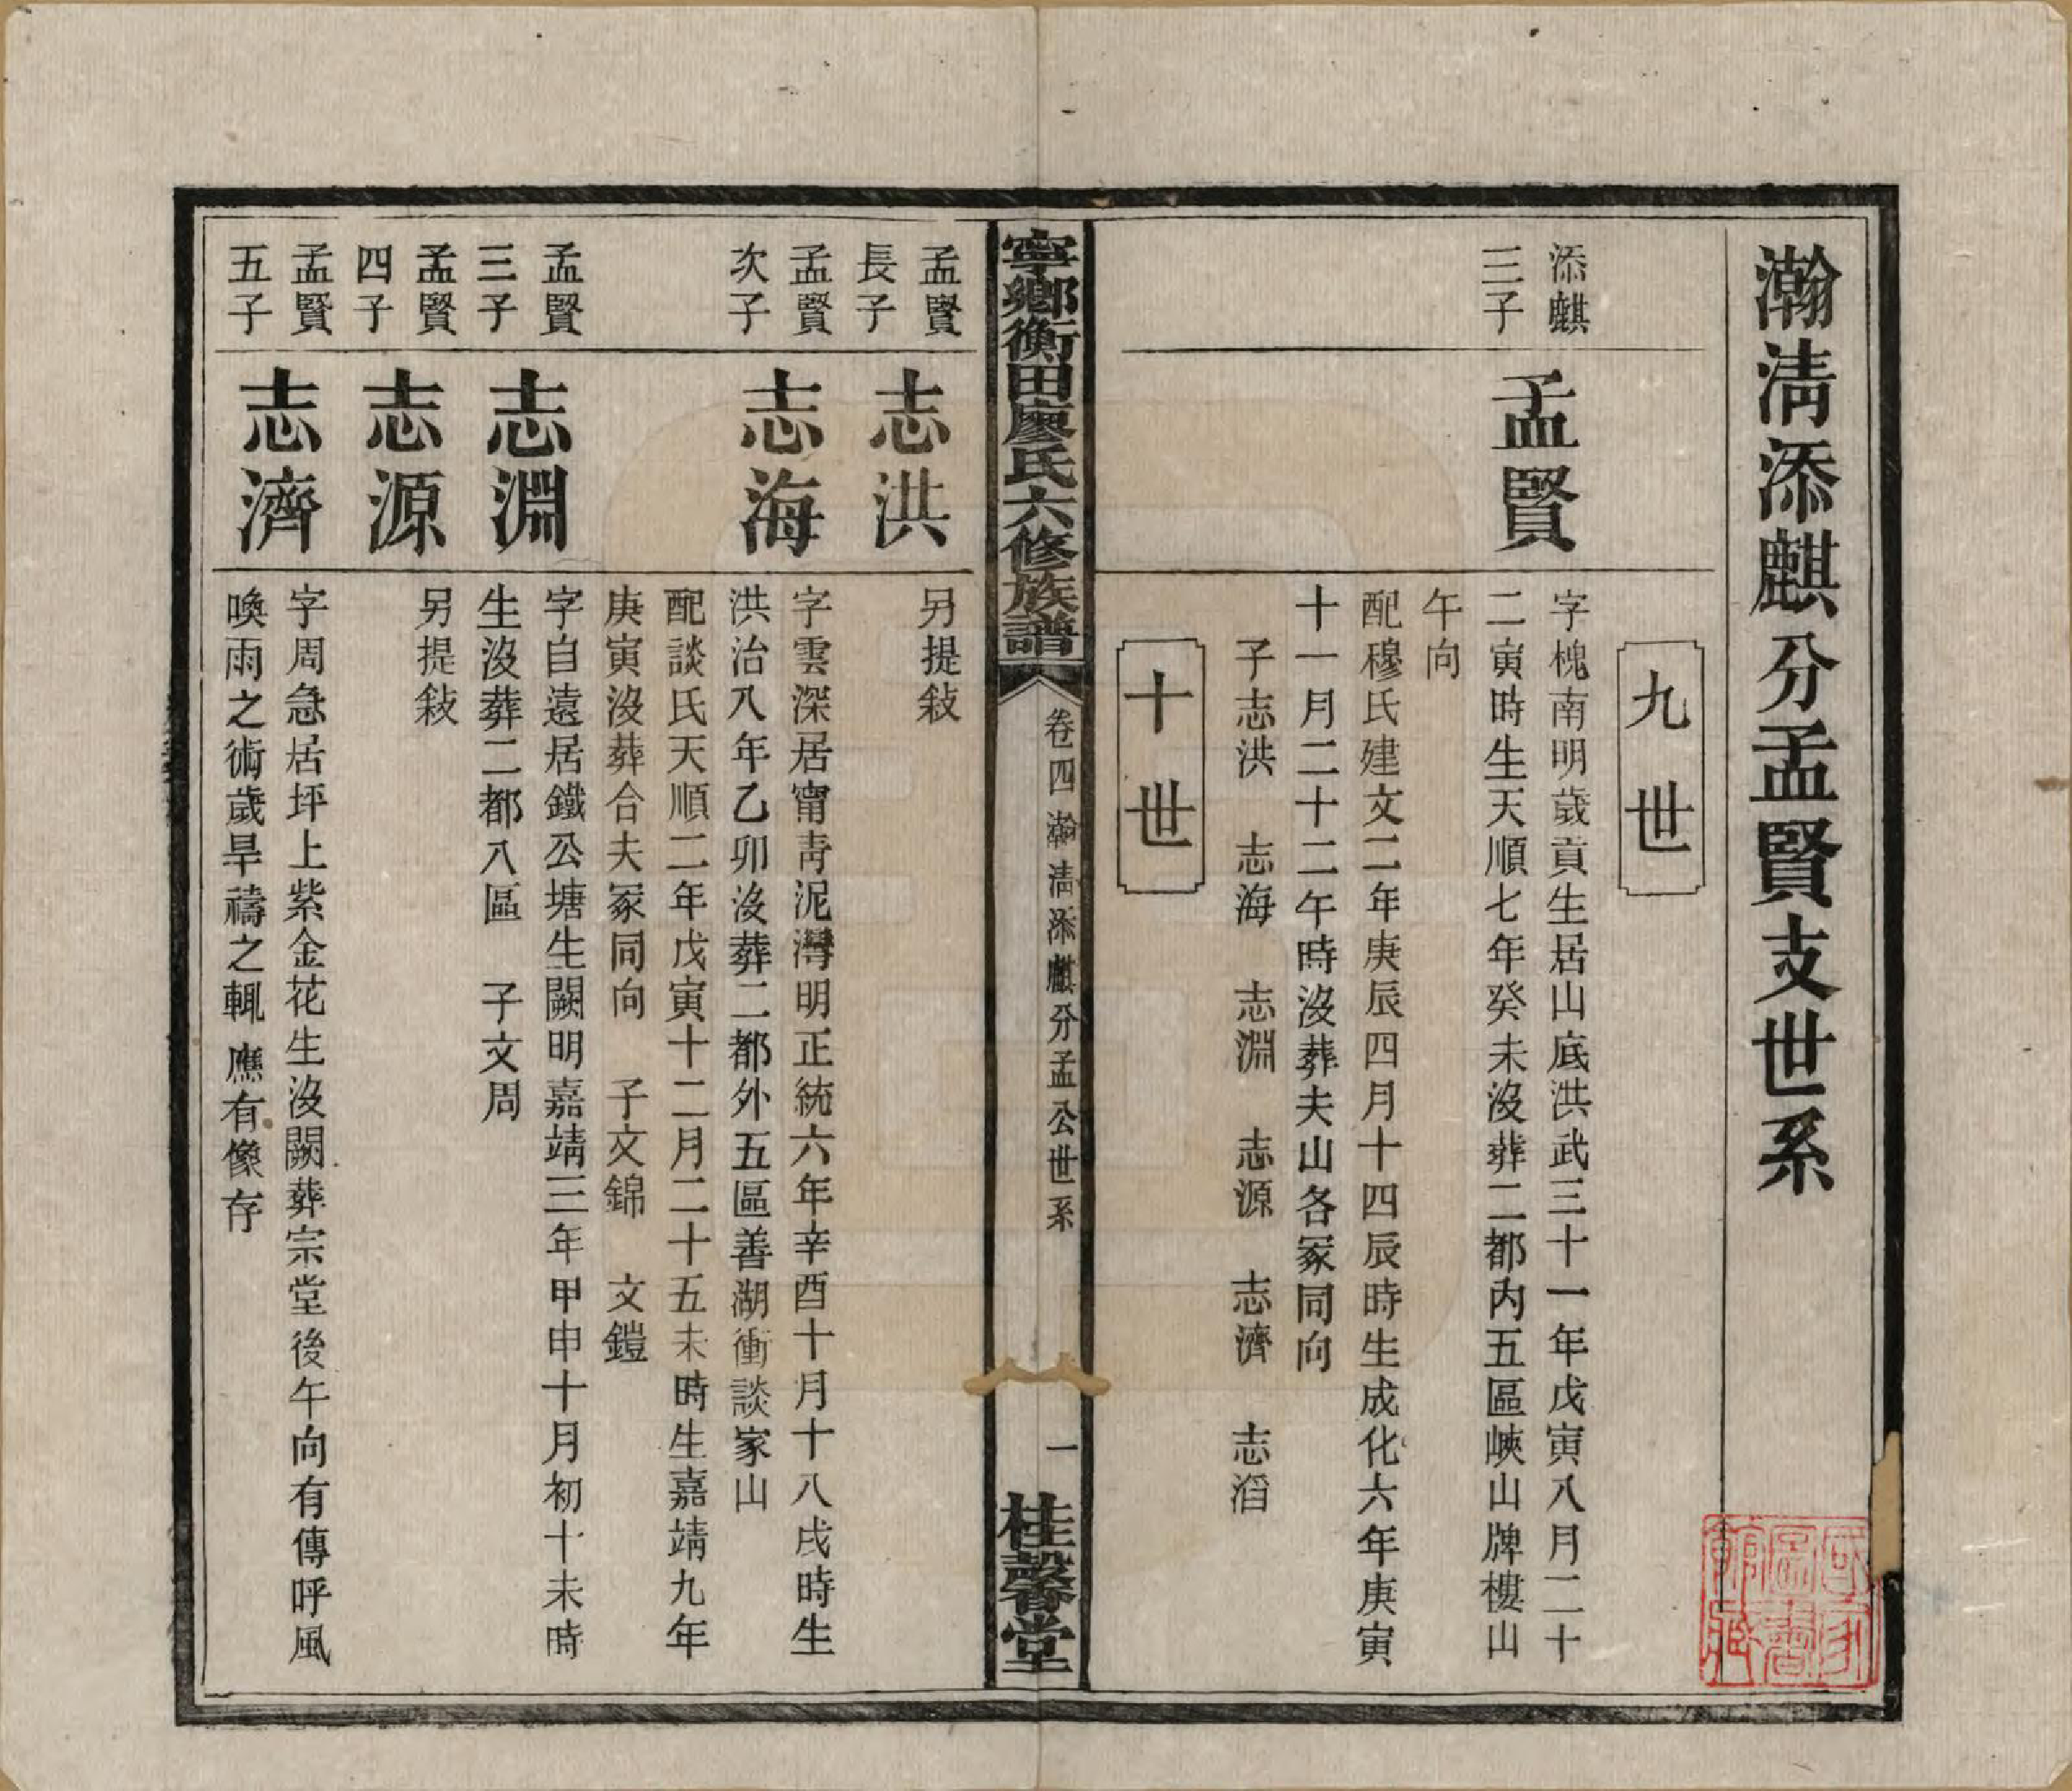 瀚淸添麒分孟賢支世系
九世
添麒
三子
孟賢
字槐南明歲貢生居山底洪武三十一年戊寅八月二十
二寅時生天順七年癸未沒葬二都內五區峽山牌樓山
午向
配穆氏建文二年庚辰四月十四辰時生成化六年庚寅
十一月二十二午時沒葬夫山各冢同向
子志洪　志海　志淵　志源　志濟　志滔
十世
寧鄉衡田廖氏六修族譜
卷四瀚淸添麒分孟公世系
一
桂馨堂
孟賢
長子
志洪
另提敍
孟賢
次子
志海
字雲深居甯靑泥灣明正統六年辛酉十月十八戌時生
洪治八年乙卯沒葬二都外五區善湖衝談家山
配談氏天順二年戊寅十二月二十五未時生嘉靖九年
庚寅沒葬合夫冢同向　子文錦　文鎧
孟賢
三子
志淵
字自遠居鐵公塘生闕明嘉靖三年甲申十月初十未時
生沒葬二都八區　子文周
孟賢
四子
志源
另提敍
孟賢
五子
志濟
字周急居坪上紫金花生沒闕葬宗堂後午向有傳呼風
喚雨之術歲旱禱之輒應有像存
國家圖書館藏